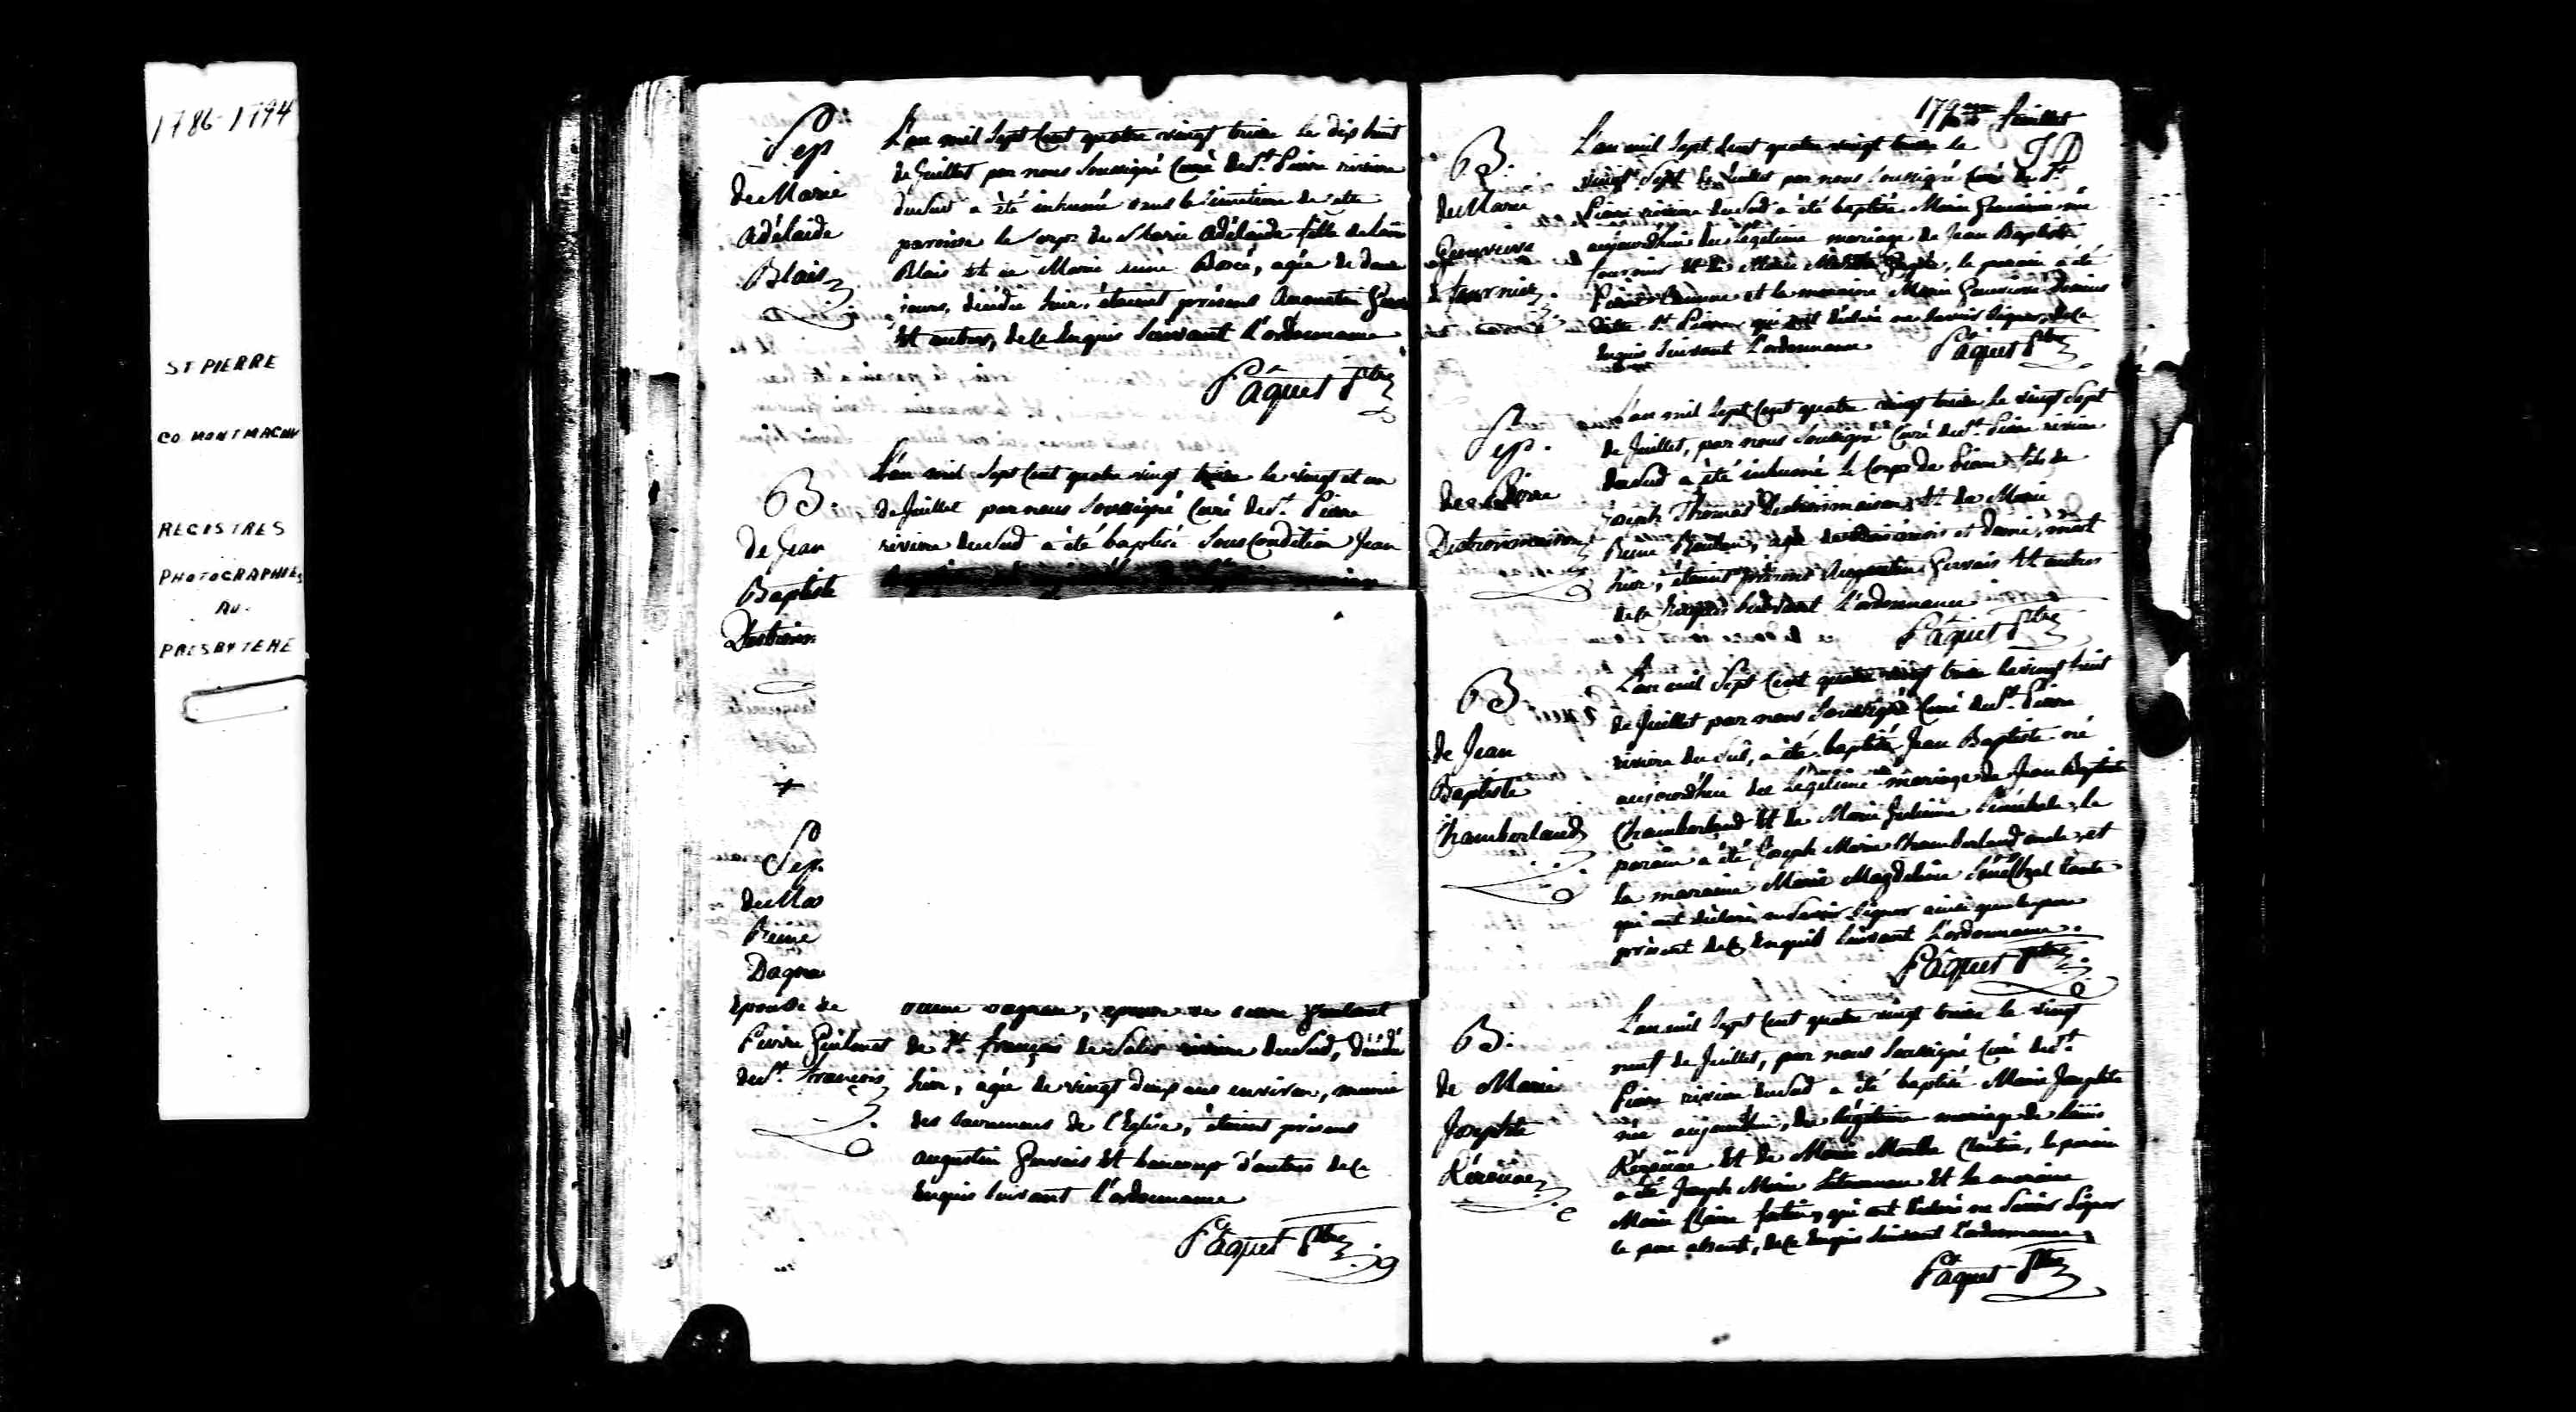 1786-1794
ST PIERRE
CO MONTMAGNY
REGISTRES
PHOTOGRAPHIES
AU
PRESBYTERE
Sep
de Marie
Adélaide
Blais
L'an mil Sept Cent quatre vingt treize le dix huit
de Juillet par nous Soussigné Curé de St. Pierre riviere
du Sud a été inhumé dans le Cimetiere de cette
paroisse le Corps de Marie Adélaide fille de
Blais et de Marie agée de douze
jours, décédée hier, étoient présens Augustin
et autres, de ce Enquis Suivant l'ordonnance
Pâquet Ptre
B.
de Jean
Baptiste
L'an mil Sept Cent quatre vingt treize le vingt et un
de Juillet par nous Soussigné Curé de St. Pierre
riviere du Sud a été baptisé Sous Condition Jean
Sep.
de Mar
Reine
Dagne
Epouse de
Pierre Guilmet
de St. François
de St. François de Sales riviere du Sud, décédée
hier, agée de vingt deux ans environ, munie
des Sacremens de l'Eglise, étoient présens
augustin Gervais et beaucoup d'autres de ce
Enquis Suivant l'ordonnance
Pâquet Ptre
179eme feuillet
B.
de Marie
Genevieve
fournier
L'an mil Sept Cent quatre vingt treize le
vingt Sept de Juillet par nous Soussigné Curé de St.
Pierre riviere du Sud a été baptisée Marie Genevieve née
aujourd'hui du légitime mariage de Jean Baptiste
fournier et de Marie le parain a été
Pierre et la maraine Marie Genevieve
St. Pierre qui ont déclaré ne Savoir Signer, de ce
Enquis Suivant l'ordonnance
Pâquet Ptre
Sep.
de Pierre
Destroismaisons
L'an mil Sept Cent quatre vingt treize le vingt Sept
de Juillet, par nous Soussigné Curé de St. Pierre riviere
du Sud a été inhumé le Corps de Pierre fils de
Joseph Thomas Destroismaisons et de Marie
Reine agé de mois et demi, mort
hier, étoient présens Augustin Gervais et autres
de ce Enquis Suivant l'ordonnance
Pâquet Ptre
B.
de Jean
Baptiste
Chamberland
L'an mil Sept Cent quatre vingt treize le vingt huit
de Juillet par nous Soussigné Curé de St. Pierre
riviere du Sud, a été baptisé Jean Baptiste né
aujourd'hui du Légitime mariage de Jean Baptiste
Chamberland et de Marie Julienne le
parain a été Joseph Marie Chamberland oncle, et
la maraine Marie Magdeleine tante
qui ont déclaré ne Savoir Signer ainsi que le pere
présent de ce Enquis Suivant l'ordonnance.
Pâquet Ptre
B.
de Marie
Josephte
Kéroüac
L'an mil Sept Cent quatre vingt treize le vingt
neuf de Juillet, par nous Soussigné Curé de St.
Pierre riviere du Sud a été baptisée Marie Josephte
née aujourd'hui, du légitime mariage de
Kéroüac et de Marie Marthe le parain
a été Joseph Marie et la maraine
Marie Claire fortin, qui ont déclaré ne Savoir Signer
le pere absent, de ce Enquis Suivant l'ordonnance
Pâquet Ptre